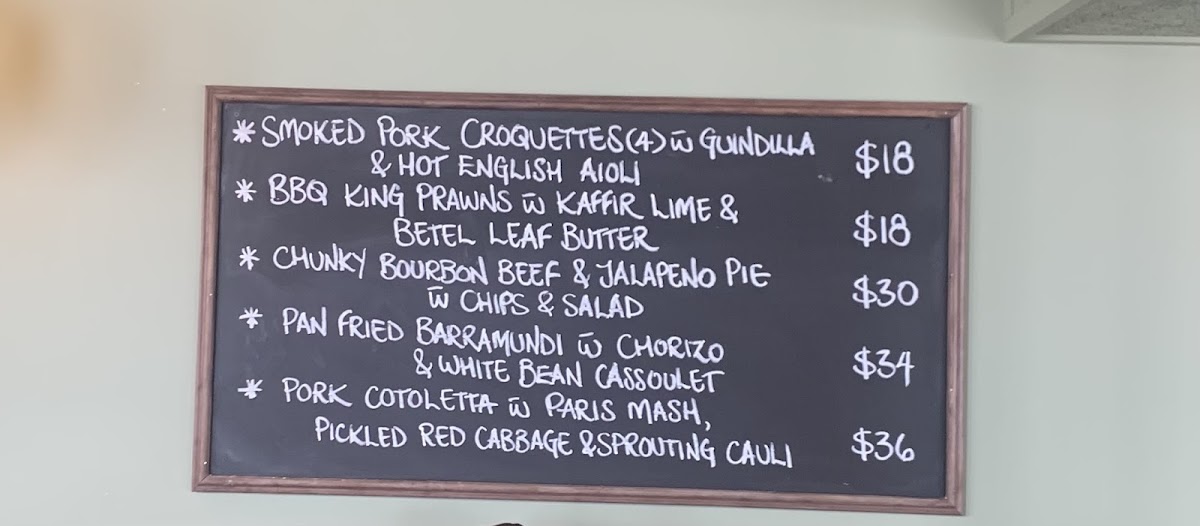 * SMOKED PORK CROQUETTES(4) w̄ GUINDILLA
& HOT ENGLISH AIOLI $18
* BBQ KING PRAWNS w̄ KAFFIR LIME &
BETEL LEAF BUTTER $18
* CHUNKY BOURBON BEEF & JALAPENO PIE
w̄ CHIPS & SALAD $30
* PAN FRIED BARRAMUNDI w̄ CHORIZO
& WHITE BEAN CASSOULET $34
* PORK COTOLETTA w̄ PARIS MASH,
PICKLED RED CABBAGE & SPROUTING CAULI $36